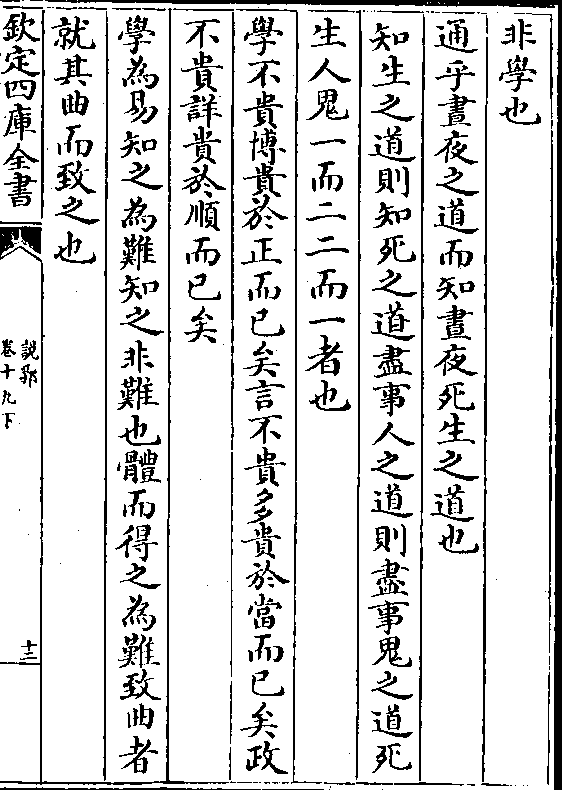 非學也
通乎晝夜之道而知晝夜死生之道也
知生之道則知死之道盡事人之道則盡事鬼之道死
生人鬼一而二二而一者也
學不貴博貴於正而已矣言不貴多貴於當而已矣政
不貴詳貴於順而已矣
學為易知之為難知之非難也體而得之為難致曲者
就其曲而致之也
欽定四庫全書
說郛
卷十九下
十三